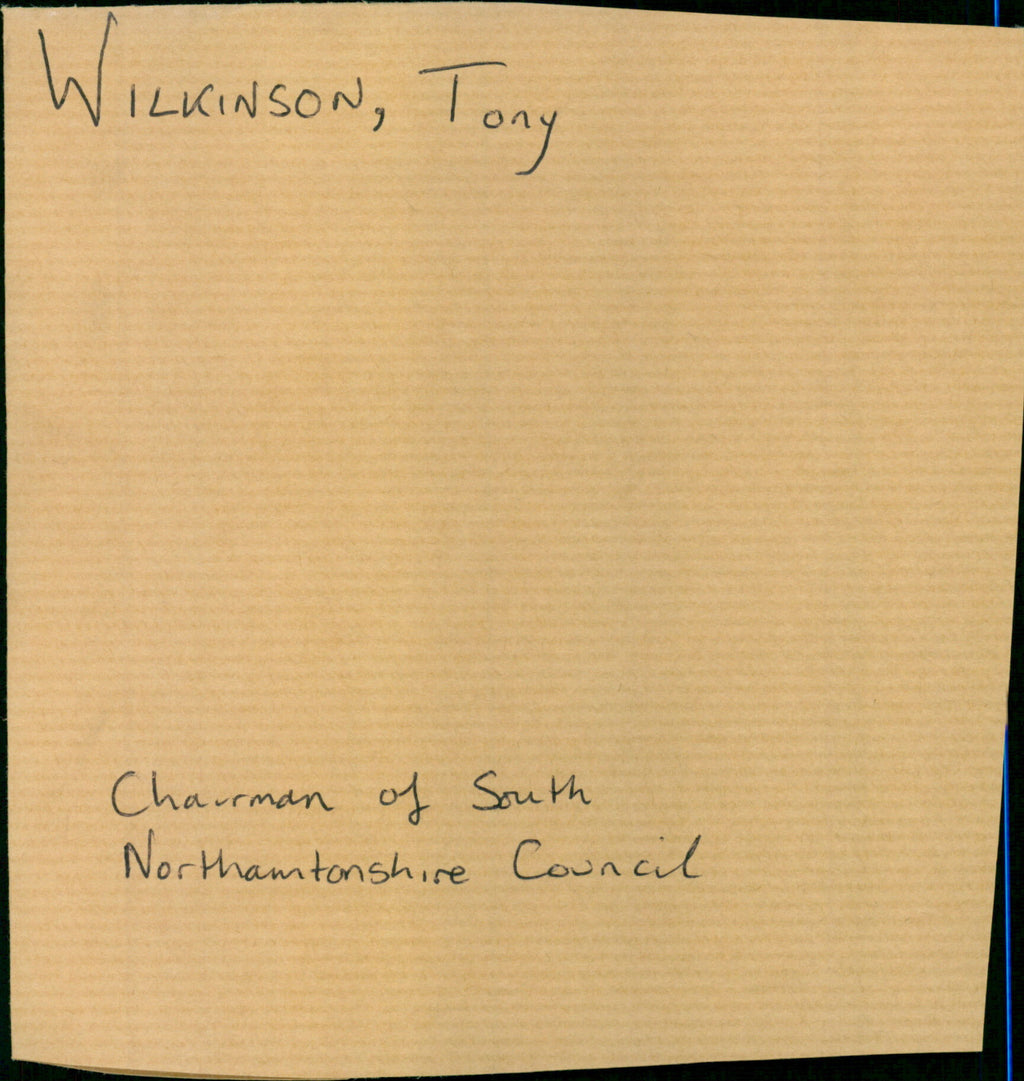 WILKINSON, Tony
Chairman of South
Northamtonshire Council